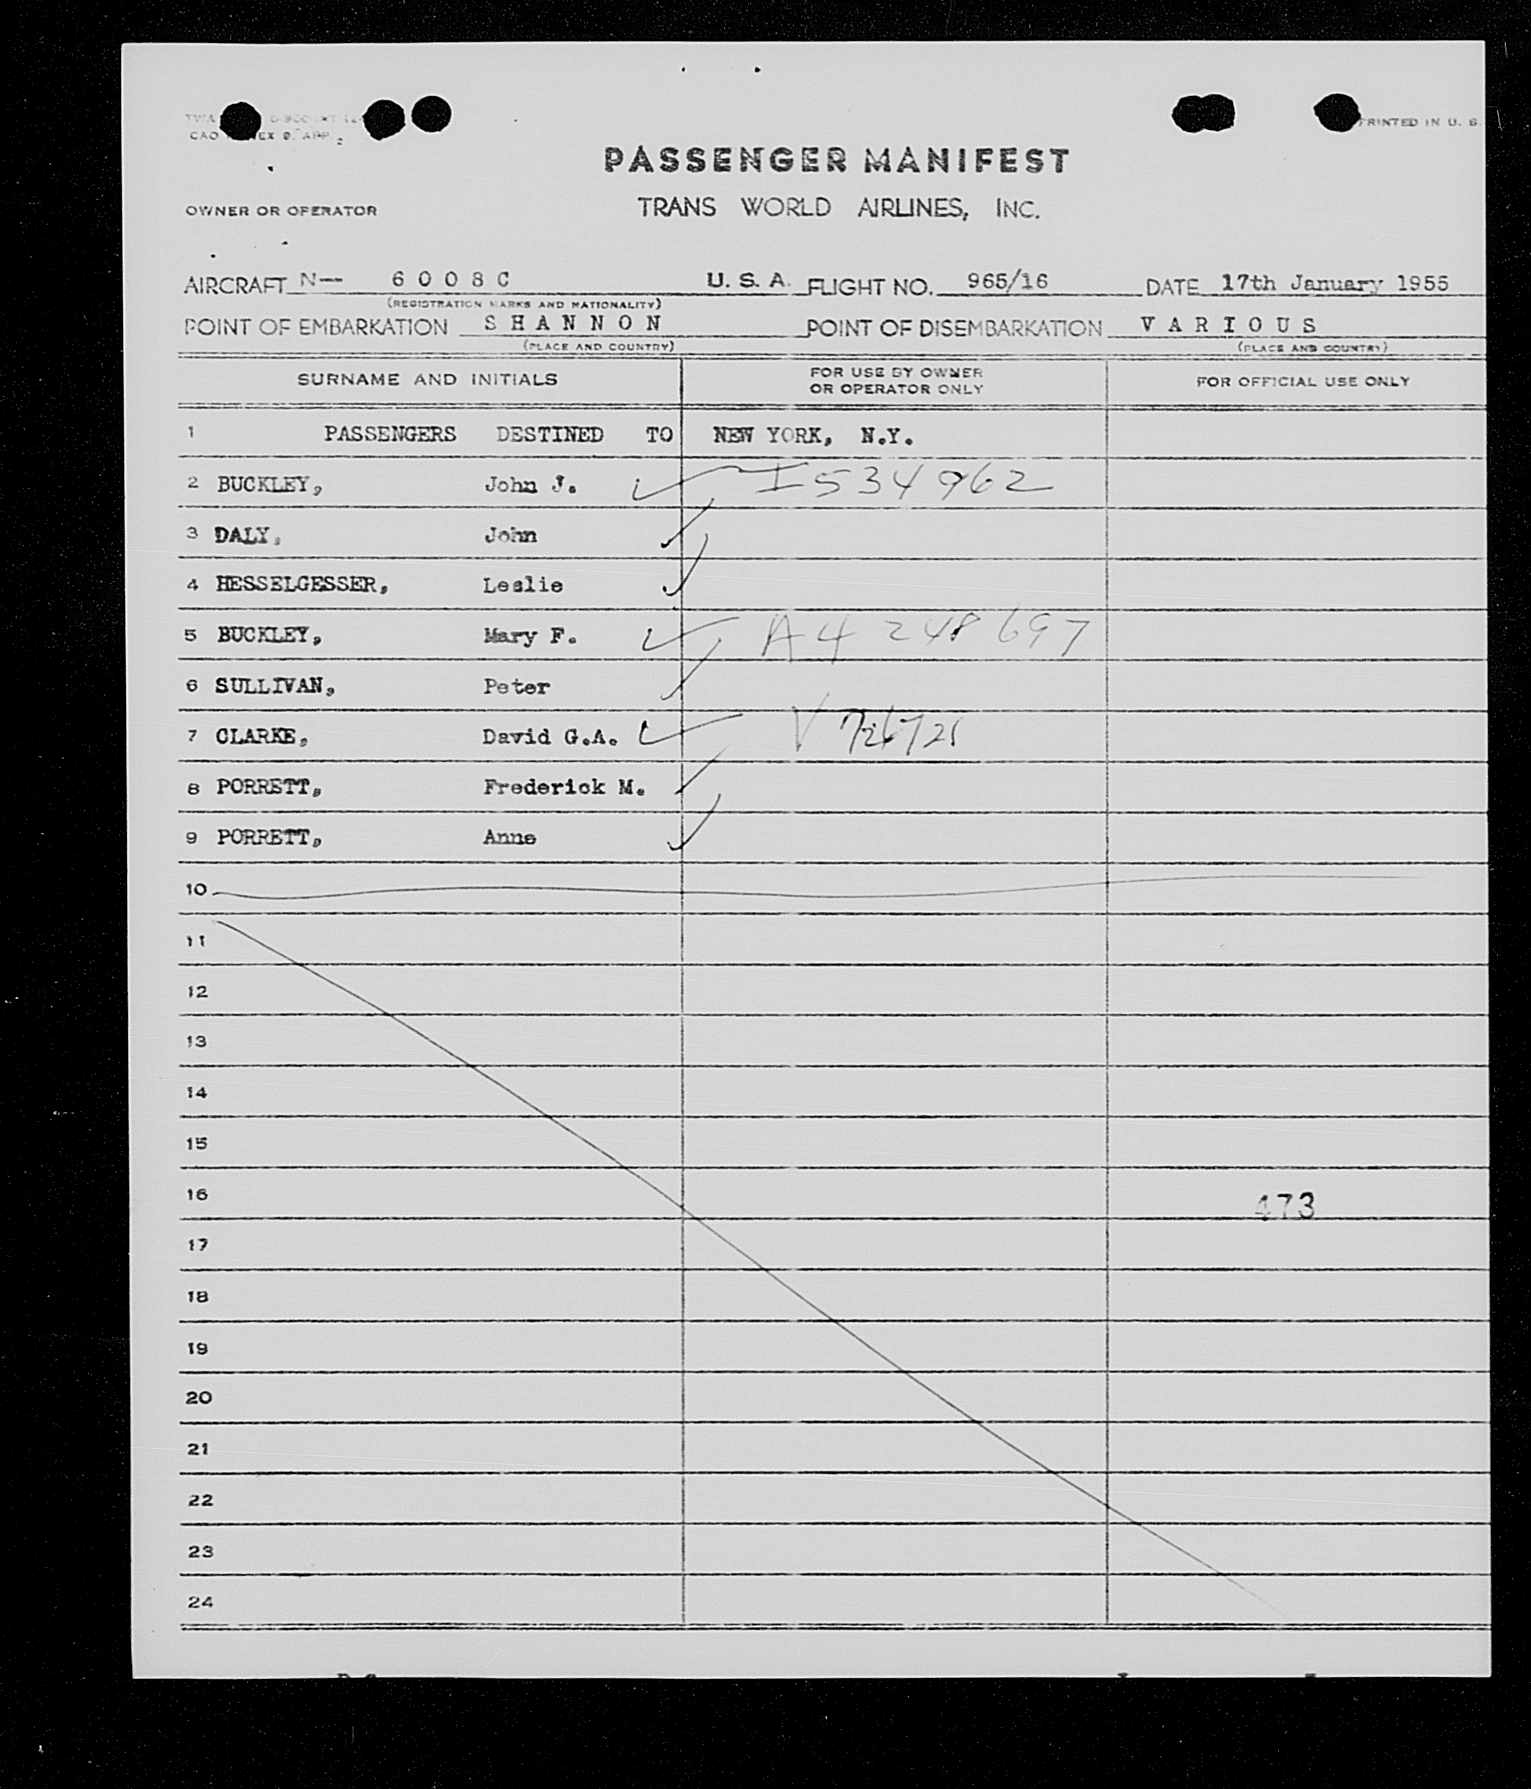 CAO
PRINTED IN U. S.
PASSENGER MANIFEST
OWNER OR OPERATOR TRANS WORLD AIRLINES, INC.
AIRCRAFT N-- 6 0 0 8 C U. S. A. FLIGHT NO. 965/16 DATE 17th January 1955
(REGISTRATION MARKS AND NATIONALITY)
POINT OF EMBARKATION S H A N N O N POINT OF DISEMBARKATION V A R I O U S
(PLACE AND COUNTRY) (PLACE AND COUNTRY)
SURNAME AND INITIALS FOR USE BY OWNER OR OPERATOR ONLY FOR OFFICIAL USE ONLY
1 PASSENGERS DESTINED TO NEW YORK, N.Y.
2 BUCKLEY, John J. I534962
3 DALY, John
4 HESSELGESSER, Leslie
5 BUCKLEY, Mary F. A4 248 697
6 SULLIVAN, Peter
7 CLARKE, David G.A.
8 PORRETT, Frederick M.
9 PORRETT, Anne
10
11
12
13
14
15
16 473
17
18
19
20
21
22
23
24